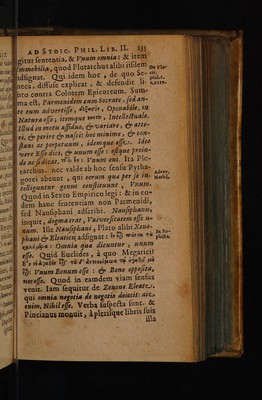 AD STOIC. PHIL. LIB. II. 135
gitur sententia, & Vnum omnia: & item
Immobilia, quod Plutarchus alibi istis
adsignat. Qui idem hoc, de quo Se-
neca, diffusè explicat, & defendit li-
bro contra Colotem Epicureum. Sum-
ma est, Parmenidem eum Socrate, sed an-
te eum aduertisse, Opinabile, in
Natura esse; itemque Intellectuale.
Illud in motu assiduo, & variare, & atte-
ri, & perire & nasci: hoc minime, & con-
stans ac perpetuum, idemque esse. Ideo
vere Esse dici, & vnum esse: esseque proin-
de ac si dicat, Vnum eni. Ita Plu-
tarchus. nec valde ab hoc sensu Pytha-
gorei abeunt, qui eorum quæ per se in-
telliguntur genus constituunt, Vnum.
Quod in Sexto Empirico legi: & in eo-
dem hanc sententiam non Parmenidi,
sed Nausiphani adscribi. Nausiphanis,
inquit, dogma erat, Vniuersitatem esse v-
num. Ille Nausiphani, Plato alibi Xeno-
phani & Eleaticis adsignat: ἓν
Omnia quæ dicuntur, vnum
esse. Quid Euclides, à quo Megarici?
Vnum Bonum esse: & Bono opposita,
non esse. Quod in eamdem viam sensus
venit. Iam sequitur de Zenone Eleate,
qui omnia negotia de negotio deiecit: ait
enim, Nihil esse. Verba suspecta sunt. &
Pincianus monuit, à plerisque libris suis
illa
De Pla-
cit.
philos.
Aduer.
Math.
In So-
phista.